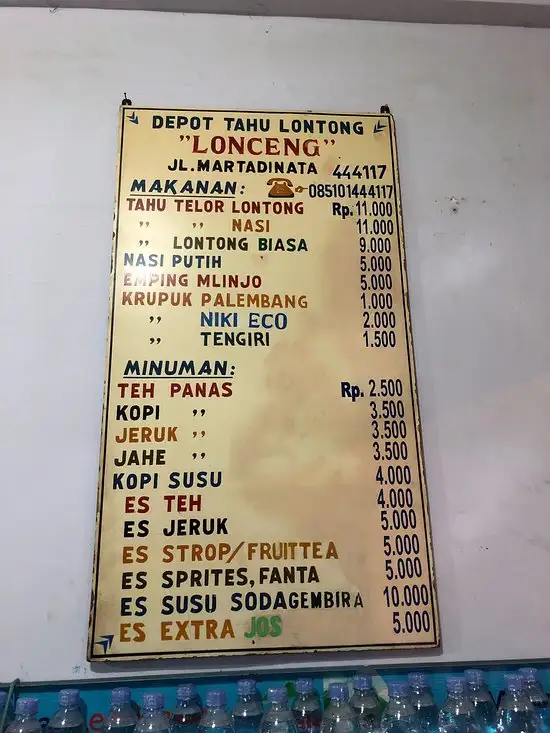 DEPOT TAHU LONTONG
"LONCENG"
JL. MARTADINATA 444117
MAKANAN: 085101444117
TAHU TELOR LONTONG Rp. 11.000
" " NASI 11.000
" LONTONG BIASA 9.000
NASI PUTIH 5.000
EMPING MLINJO 5.000
KRUPUK PALEMBANG 1.000
" NIKI ECO 2.000
" TENGIRI 1.500
MINUMAN:
TEH PANAS Rp. 2.500
KOPI " 3.500
JERUK " 3.500
JAHE " 3.500
KOPI SUSU 4.000
ES TEH 4.000
ES JERUK 5.000
ES STROP/FRUITTEA 5.000
ES SPRITES, FANTA 5.000
ES SUSU SODAGEMBIRA 10.000
ES EXTRA JOS 5.000